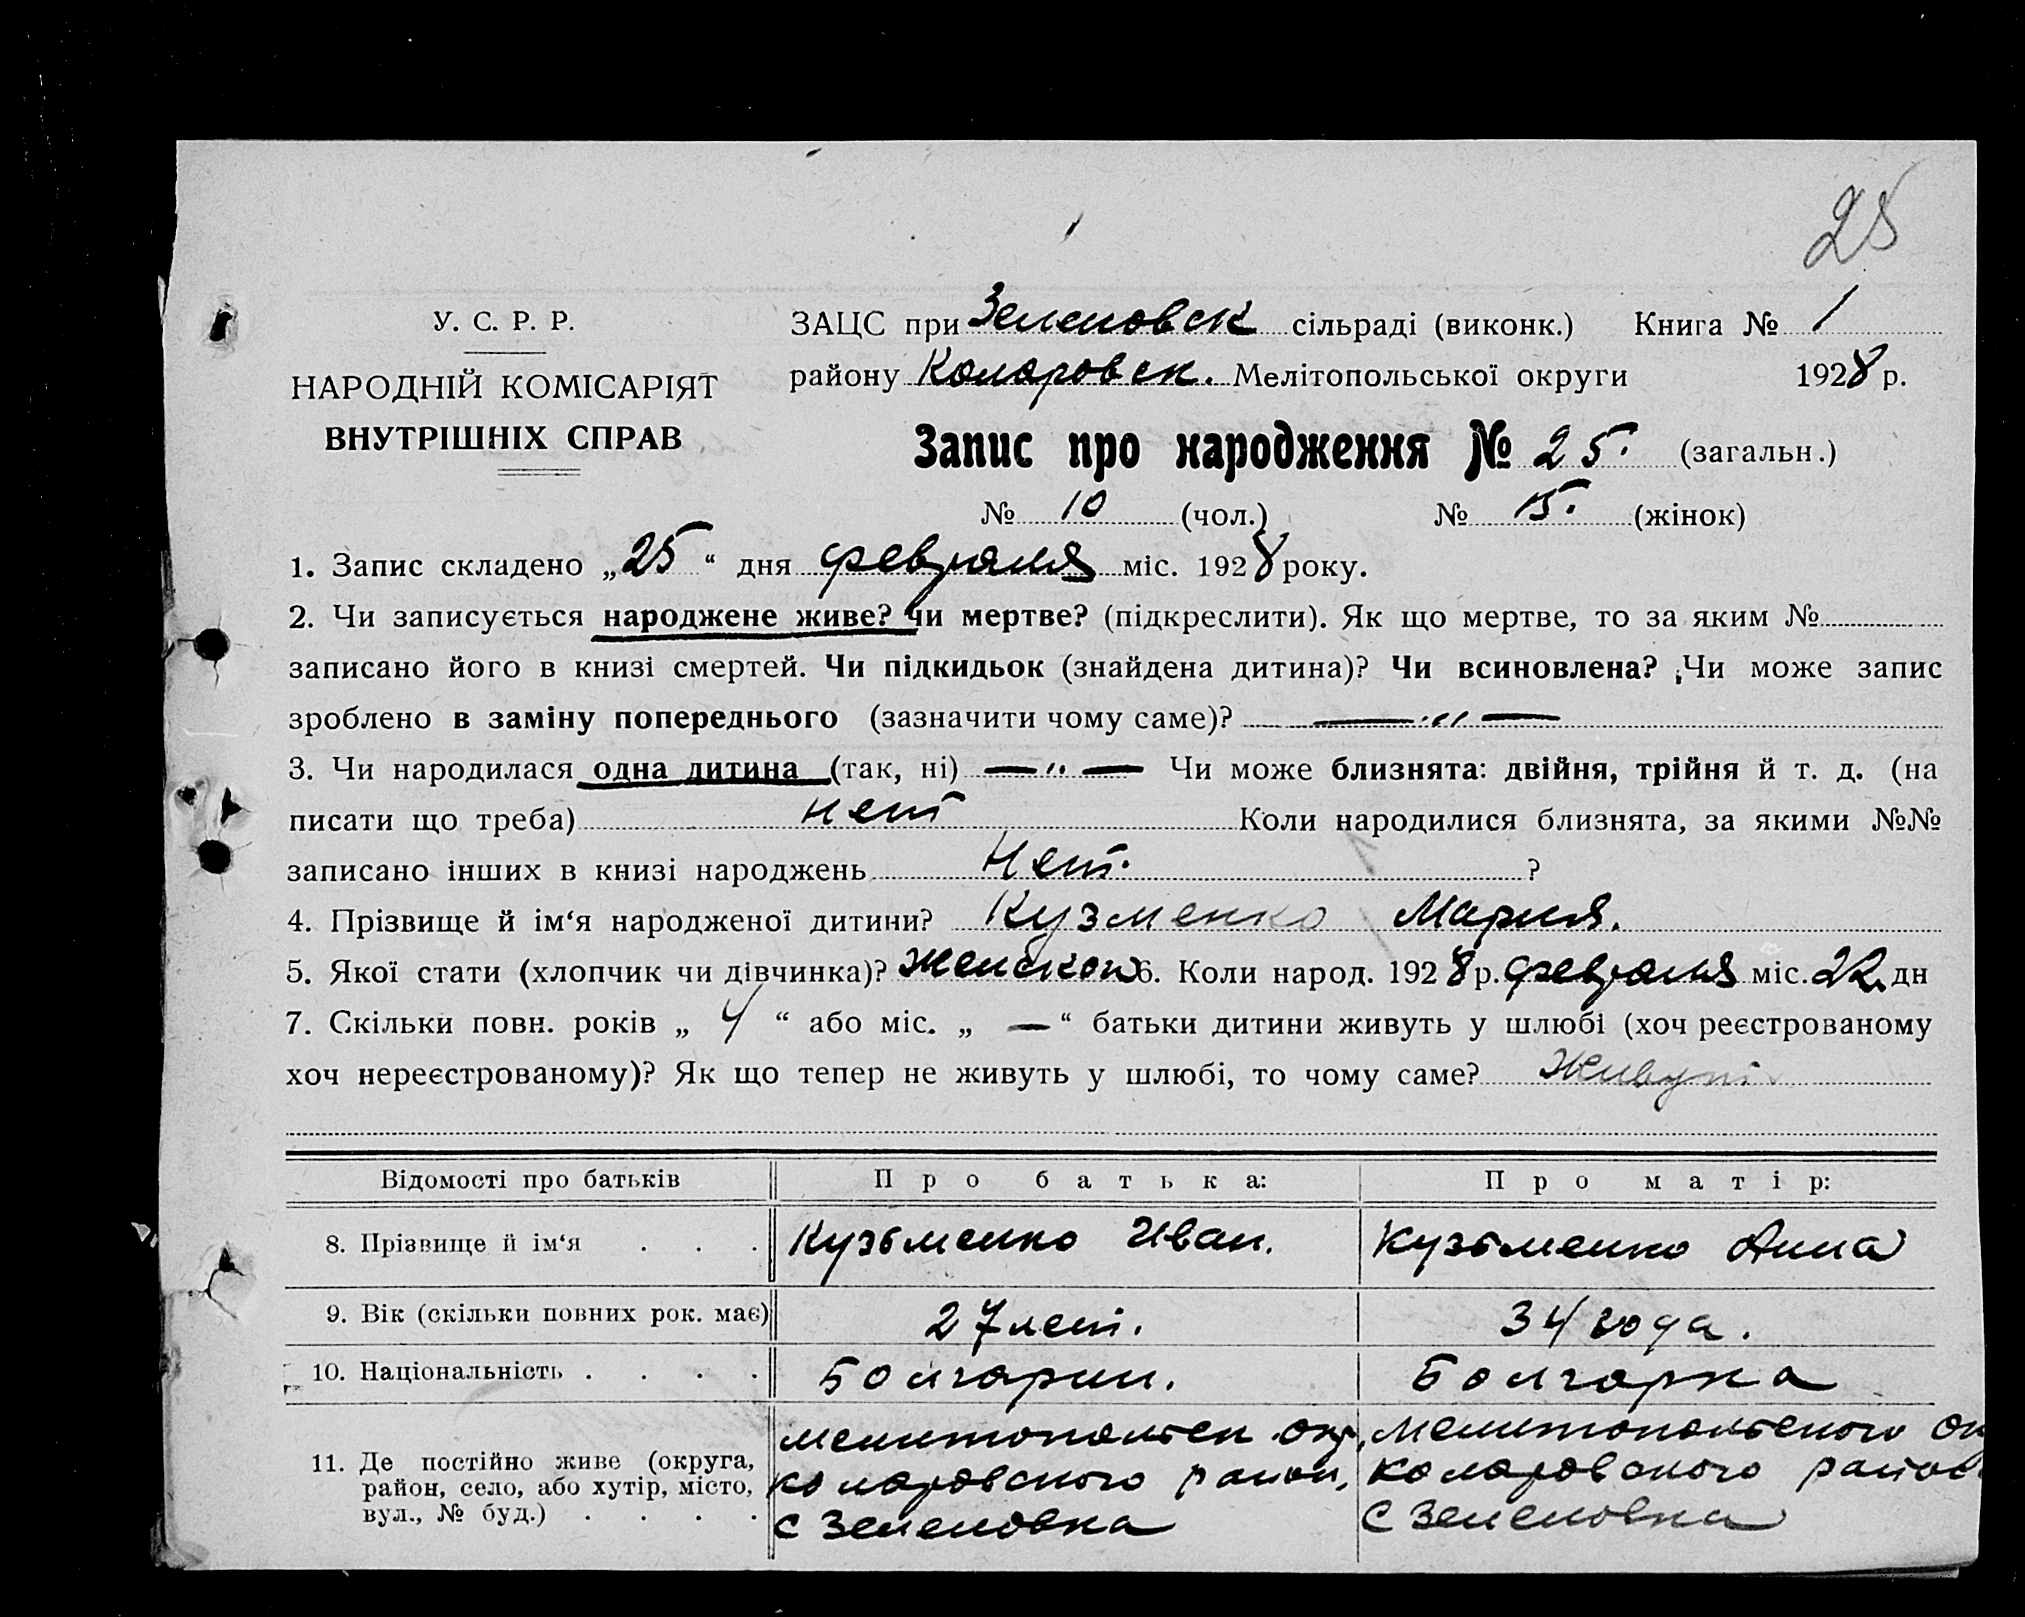 28
У. С. Р. Р.
НАРОДНІЙ КОМІСАРІЯТ
ВНУТРІШНІХ СПРАВ
ЗАЦС при Зеленовск сільраді (виконк.) Книга № 1
району Коларовск. Мелітопольської округи 1928 р.
Запис про народження № 25. (загальн.)
№ 10 (чол.) № 15. (жінок)
1. Запис складено „25“ дня февраля міс. 1928 року.
2. Чи записується народжене живе? чи мертве? (підкреслити). Як що мертве, то за яким №
записано його в книзі смертей. Чи підкидьок (знайдена дитина)? Чи всиновлена? Чи може запис
зроблено в заміну попереднього (зазначити чому саме)? — „ —
3. Чи народилася одна дитина (так, ні) — „ — Чи може близнята: двійня, трійня й т. д. (на
писати що треба) нет Коли народилися близнята, за якими №№
записано інших в книзі народжень Нет. ?
4. Прізвище й ім‘я народженої дитини? Кузменко Мария.
5. Якої стати (хлопчик чи дівчинка)? Женской 6. Коли народ. 1928 р. февраля міс. 22 дн
7. Скільки повн. років „ 4 “ або міс. „ — “ батьки дитини живуть у шлюбі (хоч реєстрованому
хоч нереєстрованому)? Як що тепер не живуть у шлюбі, то чому саме? Живут
Відомості про батьків Про батька: Про матір:
8. Прізвище й ім‘я . . . Кузьменко Иван. Кузьменко Анна
9. Вік (скільки повних рок. має) 27 лет. 34 года.
10. Національність . . . . Болгарин. Болгарка
11. Де постійно живе (округа,
район, село, або хутір, місто,
вул., № буд.) . . . .
Мелитопольск окр,
Коларовского район,
с Зеленовка
Мелитопольского ок
Коларовского район
с Зеленовка